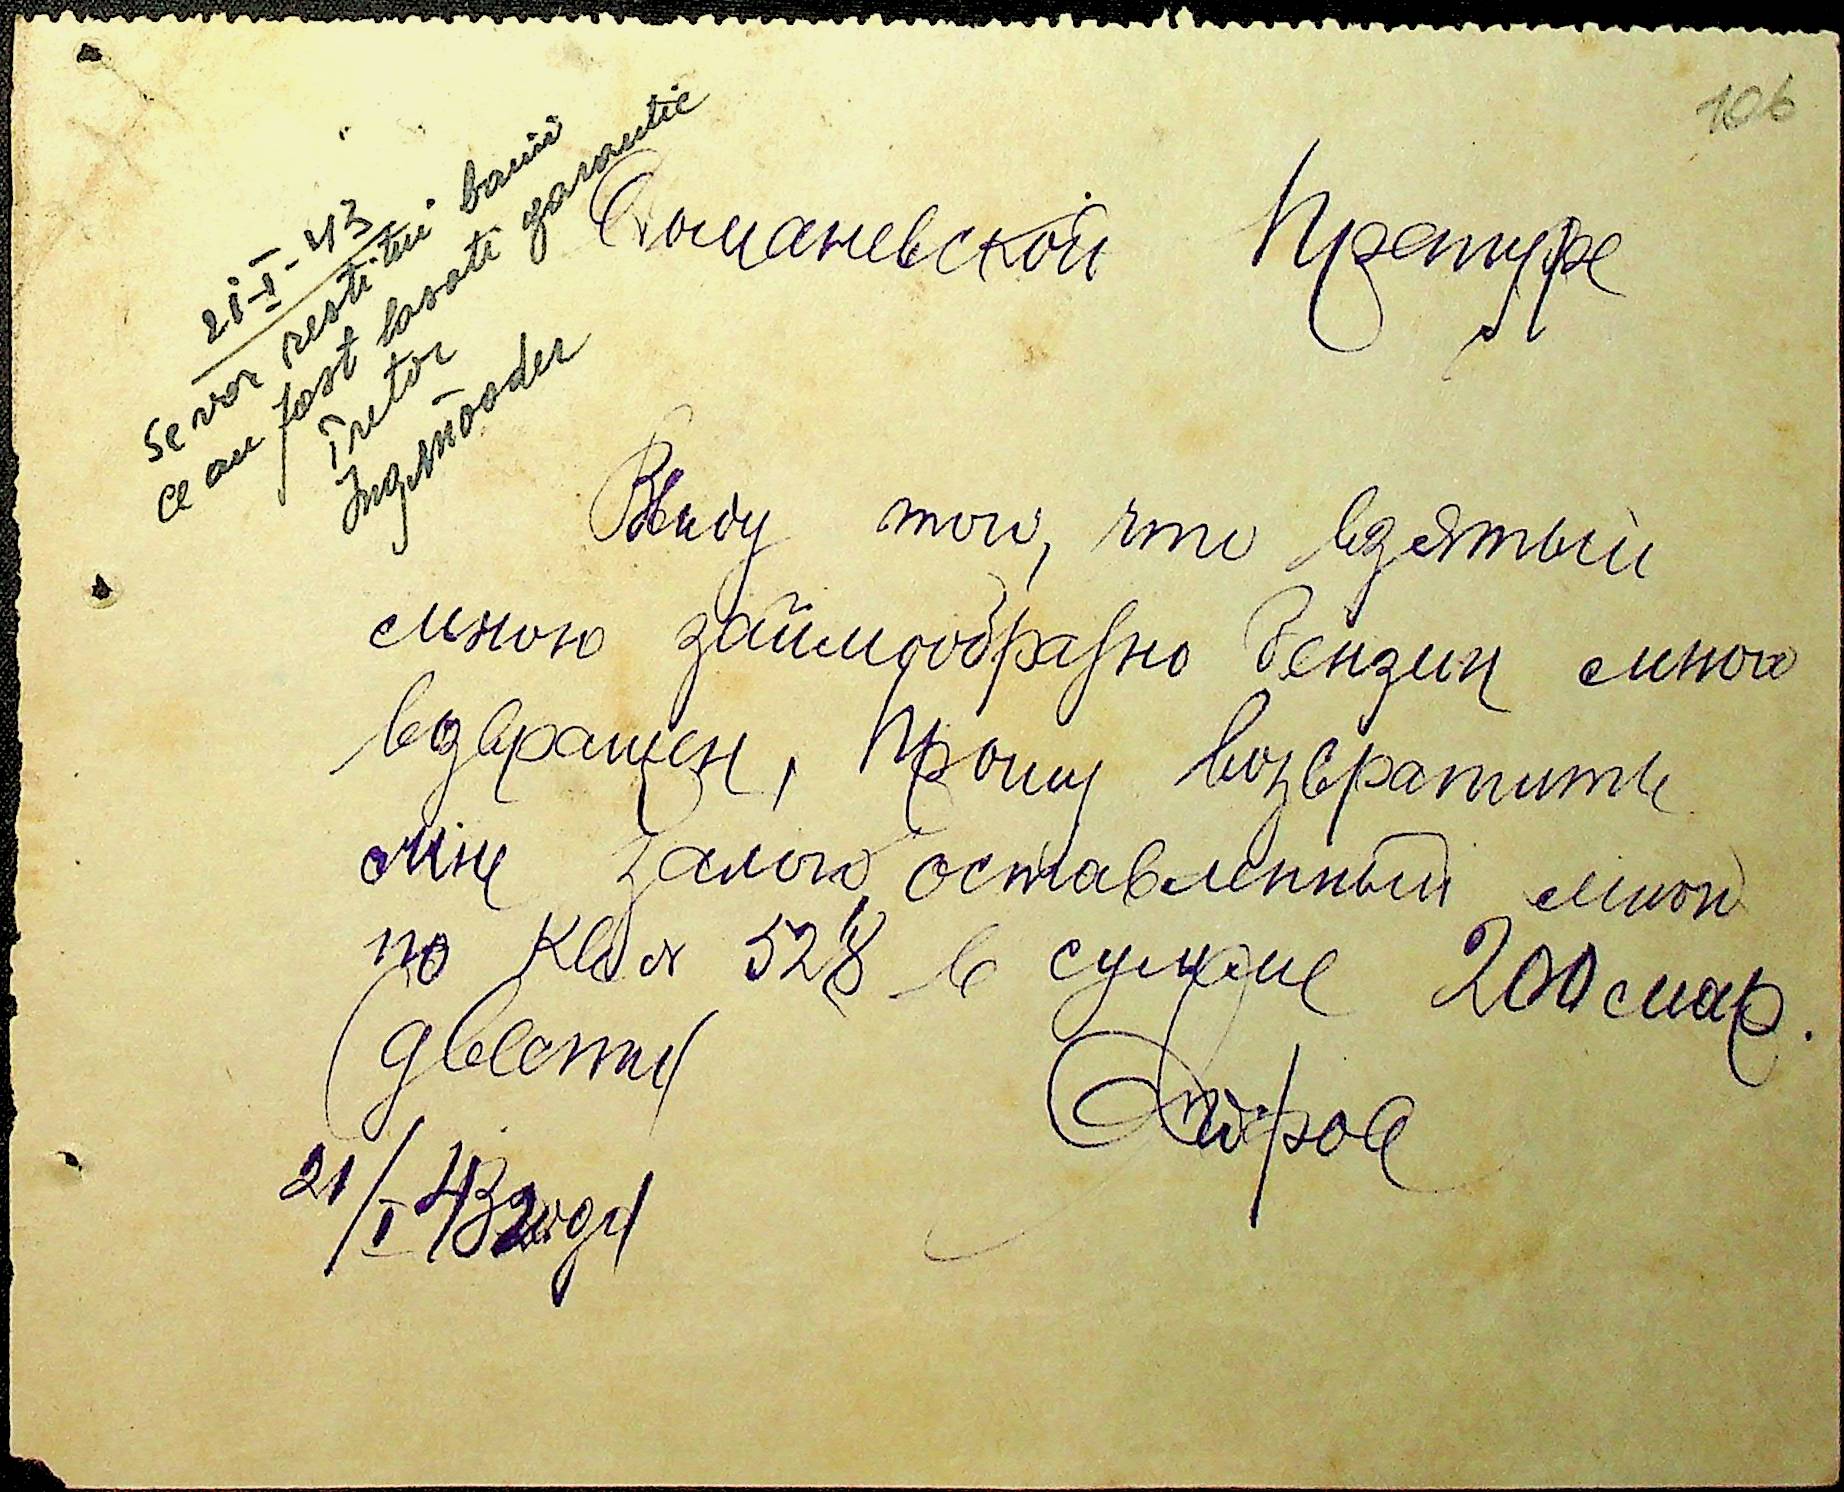 106
21-I-43
Se vor restitui banii
ce au fost lasati garantie
Pretor
Доманевской Претуре
Ввиду того, что взятый
мною займообразно бензин мною
возвращен, прошу возвратить
мне залог, оставленный мной
по кв. 528 в сумме 200 мар.
(двести)
21/I 43 года